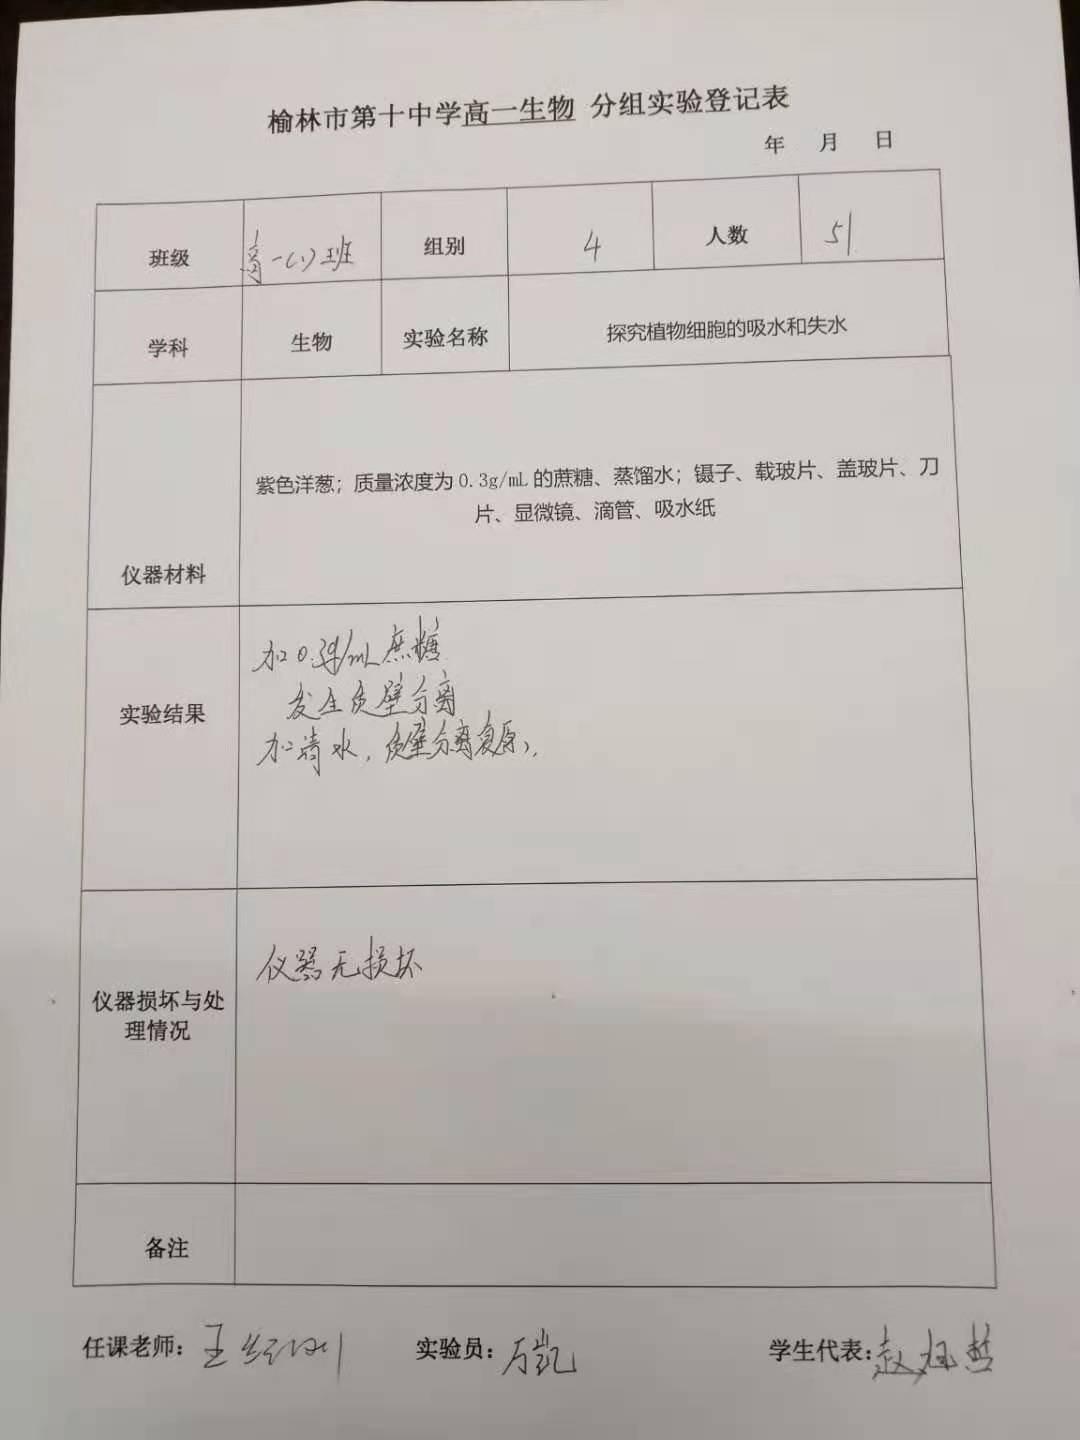 榆林市第十中学高一生物 分组实验登记表
年 月 日
班级 高一(1)班 组别 4 人数 51
学科 生物 实验名称 探究植物细胞的吸水和失水
仪器材料
紫色洋葱；质量浓度为 0.3g/mL 的蔗糖、蒸馏水；镊子、载玻片、盖玻片、刀
片、显微镜、滴管、吸水纸
实验结果
加0.3g/mL蔗糖
发生质壁分离
加清水，质壁分离复原
仪器损坏与处
理情况
仪器无损坏
备注
任课老师： 王 实验员：万凯 学生代表：赵